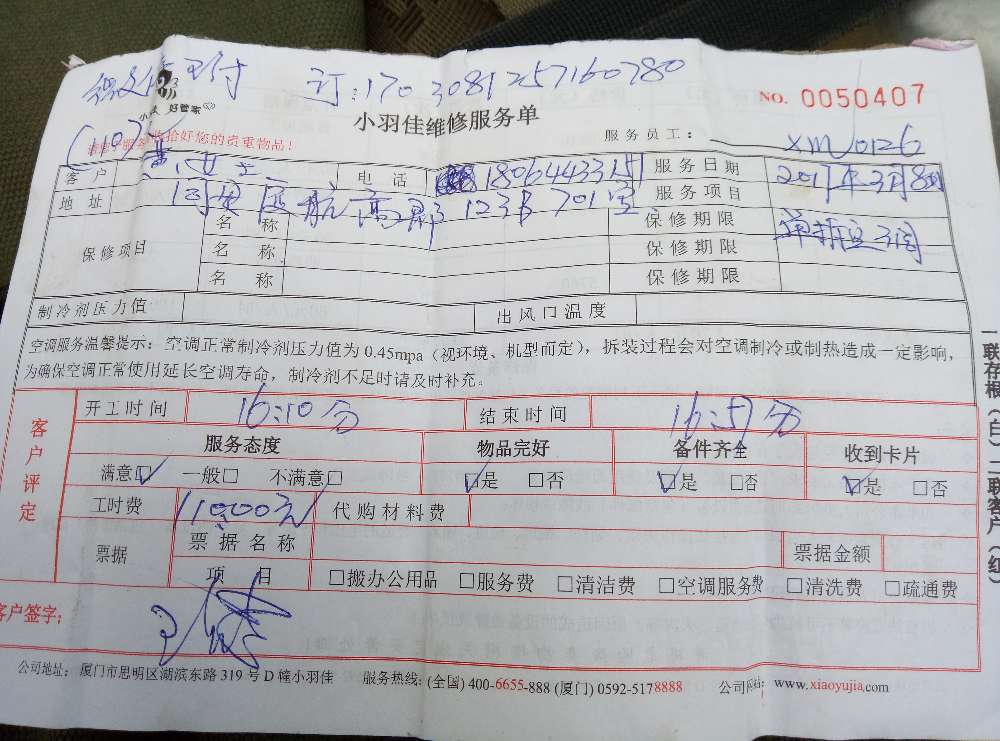 支付 订:1703081257160780
好管家
NO. 0050407
小羽佳维修服务单
服务员工: XM0126
(110) 拾好您的贵重物品!
客户 电话 18064433151 服务日期 2017年3月8
地址 区航 123B 701室 服务项目
保修项目 名称 保修期限
名称 保修期限
名称 保修期限
制冷剂压力值 出风口温度
空调服务温馨提示:空调正常制冷剂压力值为0.45mpa(视环境、机型而定),拆装过程会对空调制冷或制热造成一定影响,
为确保空调正常使用延长空调寿命,制冷剂不足时请及时补充。
客户评定
开工时间 16:10分 结束时间 16:51分
服务态度 物品完好 备件齐全 收到卡片
满意☑ 一般□ 不满意□ ☑是 □否 ☑是 □否 ☑是 □否
工时费 110.00元 代购材料费
票据 票据名称 票据金额
项目 □搬办公用品 □服务费 □清洁费 □空调服务费 □清洗费 □疏通费
客户签字:
公司地址: 厦门市思明区湖滨东路319号D幢小羽佳 服务热线:(全国)400-6655-888 (厦门)0592-5178888 公司网站: www.xiaoyujia.com
一联存根(白)二联客户(红)